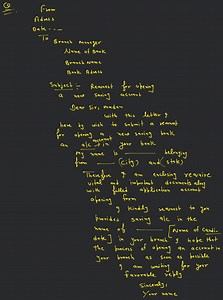 From
Adress
Date - - -
To
Branch Manager
Name of Bank
Branch Name
Bank Adress
Subject - Request for opening
a new saving account
Dear Sir, madam
With this letter I
here by wish to submit a request
for opening a new saving bank
account
an a/c in your bank.
My name is ------ belonging
from ------ (city) and (state)
Therefore I am enclosing
vital and important documents along
with filled application account
opening form
I kindly request to you
saving a/c in the
name of ------ [Name of Candi-
date] in your branch I hope that
the process of opening an account in
your branch as soon as possible
I am waiting for your
favourable reply
Sincerely,
Your name